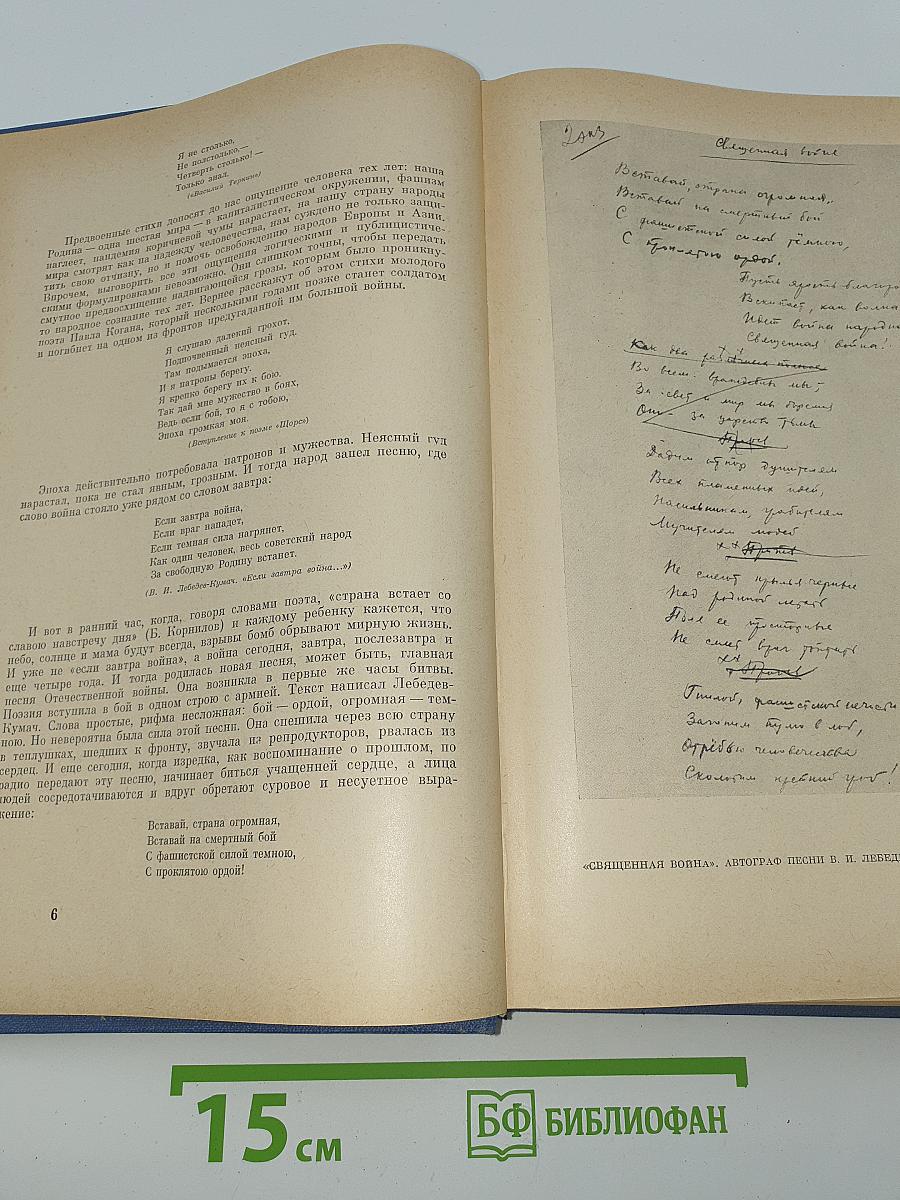 Я не столько,
Не полстолько,—
Четверть столько! —
Только знал.
(«Василий Теркин»)
Предвоенные стихи доносят до нас ощущение человека тех лет: наша
Родина — одна шестая мира — в капиталистическом окружении, фашизм
наглеет, пандемия коричневой чумы нарастает, на нашу страну народы
мира смотрят как на надежду человечества, нам суждено не только защи-
тить свою отчизну, но и помочь освобождению народов Европы и Азии.
Впрочем, выговорить все эти ощущения логическими и публицистиче-
скими формулировками невозможно. Они слишком точны, чтобы передать
смутное предвосхищение надвигающейся грозы, которым было проникну-
то народное сознание тех лет. Вернее расскажут об этом стихи молодого
поэта Павла Когана, который несколькими годами позже станет солдатом
и погибнет на одном из фронтов предугаданной им большой войны.
Я слушаю далекий грохот,
Подпочвенный неясный гуд.
Там подымается эпоха,
И я патроны берегу.
Я крепко берегу их к бою.
Так дай мне мужество в боях,
Ведь если бой, то я с тобою,
Эпоха громкая моя.
(Вступление к поэме «Щорс»)
Эпоха действительно потребовала патронов и мужества. Неясный гуд
нарастал, пока не стал явным, грозным. И тогда народ запел песню, где
слово война стояло уже рядом со словом завтра:
Если завтра война,
Если враг нападет,
Если темная сила нагрянет,
Как один человек, весь советский народ
За свободную Родину встанет.
(В. И. Лебедев-Кумач. «Если завтра война...»)
И вот в ранний час, когда, говоря словами поэта, «страна встает со
славою навстречу дня» (Б. Корнилов) и каждому ребенку кажется, что
небо, солнце и мама будут всегда, взрывы бомб обрывают мирную жизнь.
И уже не «если завтра война», а война сегодня, завтра, послезавтра и
еще четыре года. И тогда родилась новая песня, может быть, главная
песня Отечественной войны. Она возникла в первые же часы битвы.
Поэзия вступила в бой в одном строю с армией. Текст написал Лебедев-
Кумач. Слова простые, рифма несложная: бой — ордой, огромная — тем-
ною. Но невероятна была сила этой песни. Она спешила через всю страну
в теплушках, шедших к фронту, звучала из репродукторов, рвалась из
сердец. И еще сегодня, когда изредка, как воспоминание о прошлом, по
радио передают эту песню, начинает биться учащенней сердце, а лица
людей сосредотачиваются и вдруг обретают суровое и несуетное выра-
жение:
Вставай, страна огромная,
Вставай на смертный бой
С фашистской силой темною,
С проклятою ордой!
6
2 экз
Священная война
Вставай, страна огромная,
Вставай на смертный бой
С фашистской силой тёмною,
С проклятою ордой.
Пусть ярость благоро
Вскипает, как волна
Идёт война народна
Священная война!
Как два
Во всем враждебны мы;
За свет и мир мы боремся
Они за царство тьмы
Припев
Дадим отпор душителям
Всех пламенных идей,
Насильникам, грабителям
Мучителям людей
Припев
Не смеют крылья чёрные
Над родиной летать
Поля её просторные
Не смеет враг топтать
Припев
Гнилой, фашистской нечисти
Загоним пулю в лоб,
Отребью человечества
Сколотим крепкий гроб!
«СВЯЩЕННАЯ ВОЙНА». АВТОГРАФ ПЕСНИ В. И. ЛЕБЕД
15 см
БФ БИБЛИОФАН